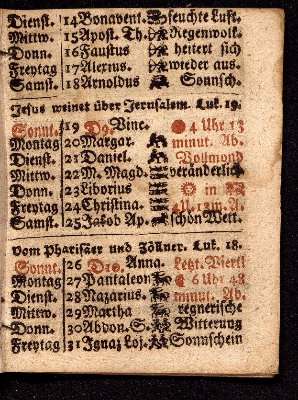 Dienst. 14 Bonavent. feuchte Luft.
Mittw. 15 Apost. Th. Regenwolk.
Donn. 16 Faustus heitert sich
Freytag 17 Alexius. wieder aus.
Samst. 18 Arnoldus Sonnsch.
Jesus weinet über Jerusalem. Luk. 19.
Sonnt. 19 D9. Vinc. 4 Uhr 13
Montag 20 Margar. minut. Ab.
Dienst. 21 Daniel. Vollmond
Mittw. 22 M. Magd. veränderlich
Donn. 23 Liborius in
Freytag 24 Christina. 4 U. 12 m. A.
Samst. 25 Jakob Ap. schön Wett.
Vom Pharisäer und Zöllner. Luk. 18.
Sonnt. 26 D10. Anna. Letzt. Viertl
Montag 27 Pantaleon 6 Uhr 48
Dienst. 28 Nazarius. minut. Ab.
Mittw. 29 Martha regnerische
Donn. 30 Abdon. S. Witterung
Freytag 31 Ignaz Loj. Sonnschein